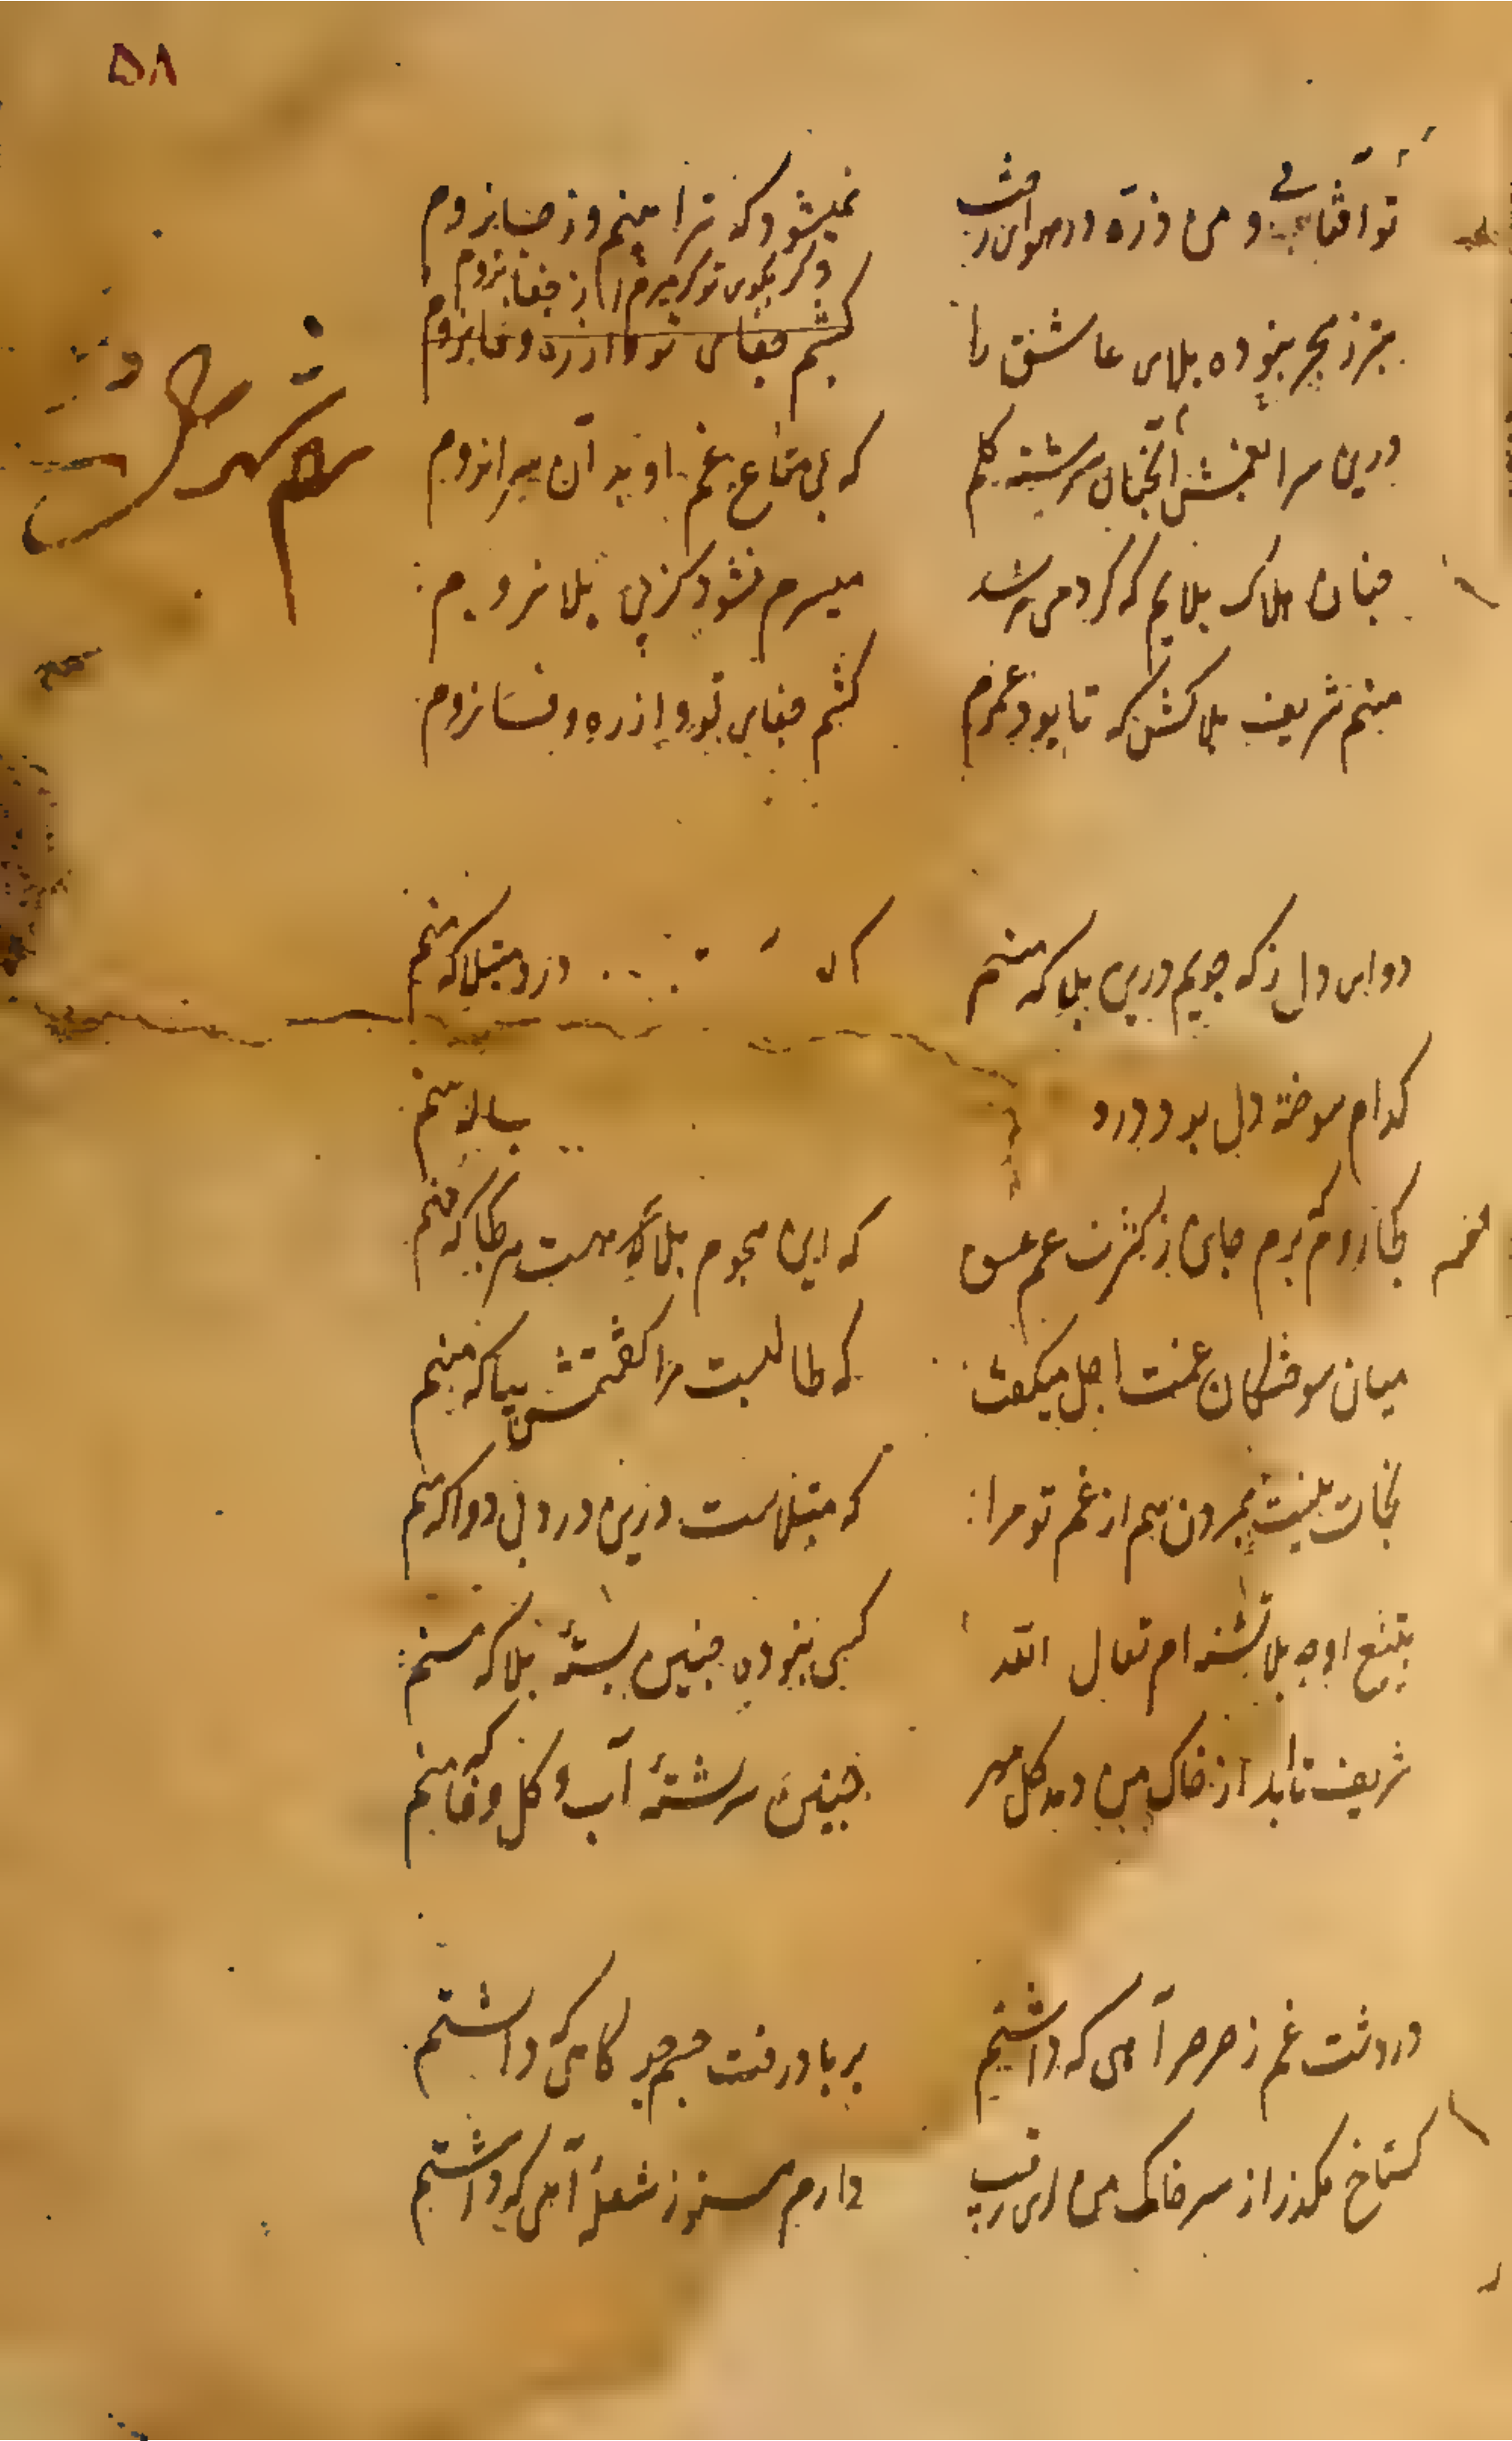 ۵۸
تو آفتابی و من ذره در هوای رخت نمیشود که ترا بینم و ز جا نروم
وگر بکوی تو میرم از جفا نروم
بتر ز هجر نبوده بلای عاشق را کشم جفای تو و از ره وفا نروم
درین سرا بغمش آنچنان سرشته گلم که بی متاع غم او بدان سرا نروم
چنان هلاک بلایم که گرد من برسد میسرم نشود کز پی بلا نروم
منم شریف بلاکش که تا بود عمرم کشم جفای تو و از ره وفا نروم
دوای دل ز که جویم درین بلا که منم درد مبتلا که منم
کدام سوخته دل بود درد منم
کجا روم که برم جان ز کثرت غم عشق که این هجوم بلا هست هر کجا که منم
میان سوختگان غمت اجل میگفت که طالبست مرا گفتمش بیا که منم
نجات نیست بمردن هم از غم تو مرا که مبتلاست درین درد بی دوا که منم
بتیغ او چه بلا تشنه ام تعال الله کسی نبوده چنین بستهٔ بلا که منم
شریف تا ابد از خاک من دمد گل مهر چنین سرشتهٔ آب و گل وفا که منم
در دشت غم ز صرصر آهی که داشتم بر باد رفت جسم چو کاهی که داشتم
گستاخ مگذر از سر خاک من ای رقیب دارم هنوز شعلهٔ آهی که داشتم